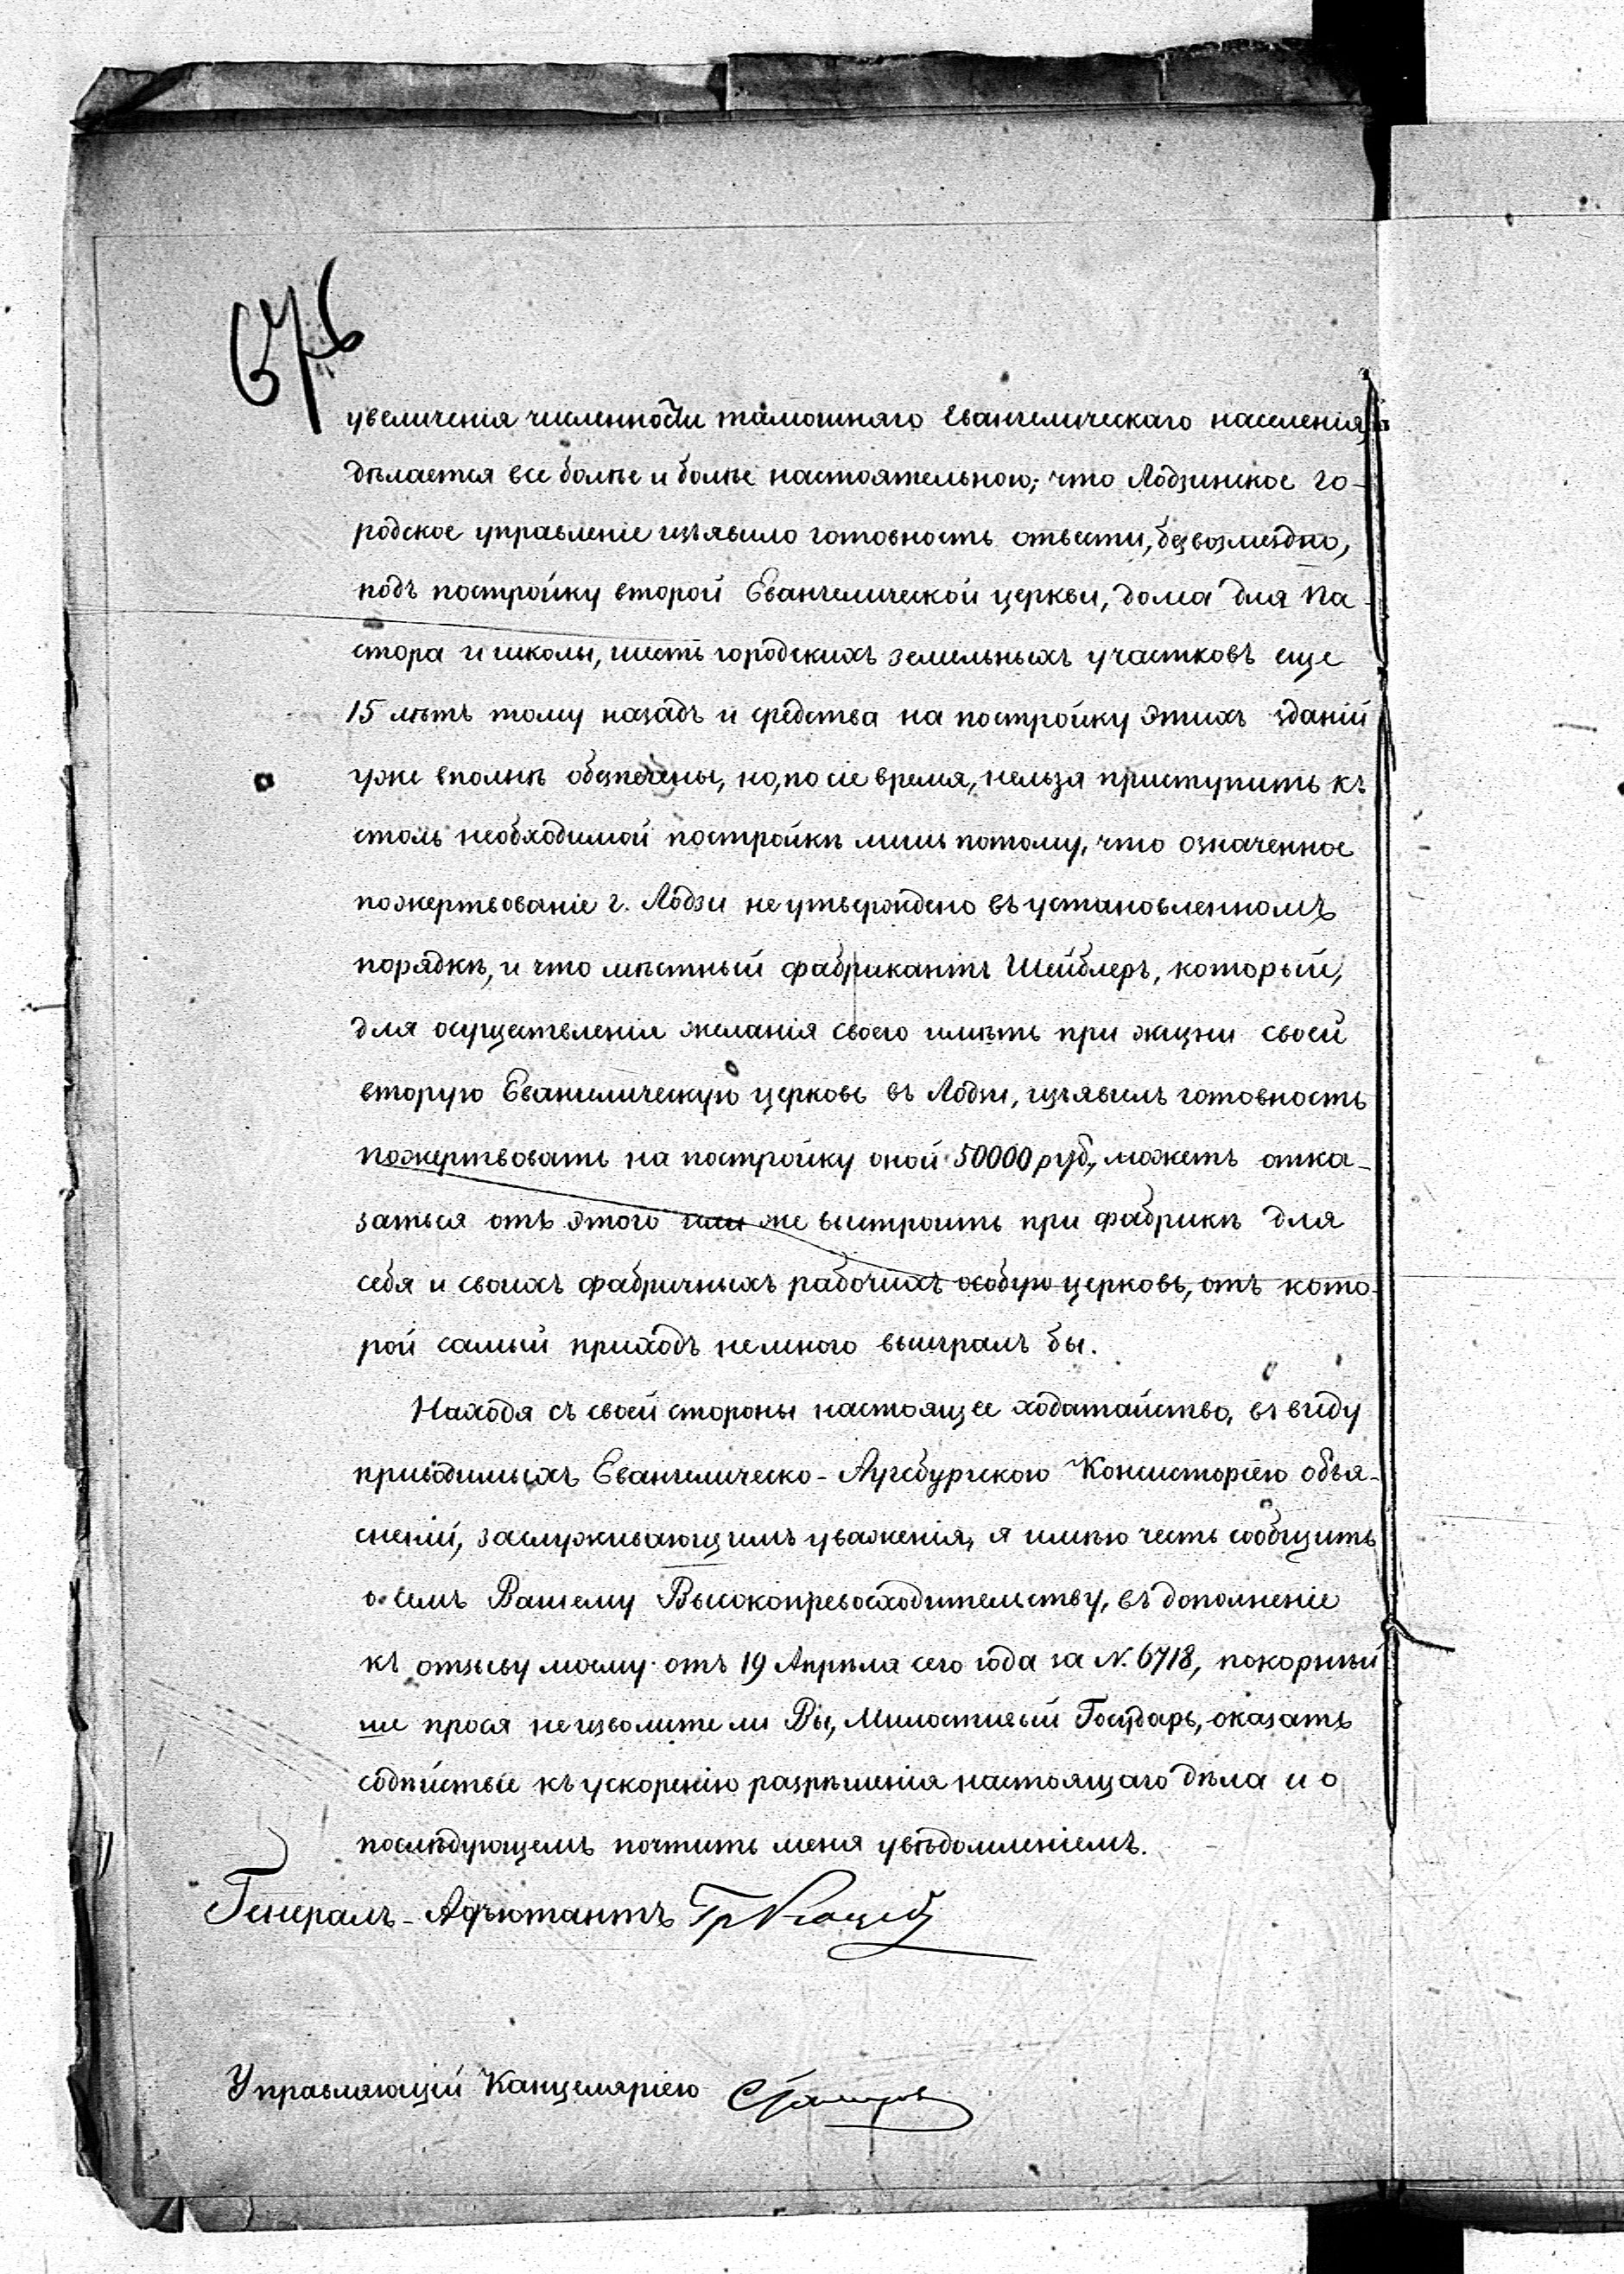 676
увеличенія численности тамошняго Евангелическаго населенія,
дѣлается все болѣе и болѣе настоятельною; что Лодзинское го-
родское управленіе изъявило готовность отвести, безвозмездно,
подъ постройку второй Евангелической церкви, дома для Па-
стора и школы, шесть городскихъ земельныхъ участковъ еще
15 лѣтъ тому назадъ и средства на постройку этихъ зданій
уже вполнѣ обезпечены, но, по сіе время, нельзя приступить къ
столь необходимой постройкѣ лишь потому, что означенное
пожертвованіе г. Лодзи не утверждено въ установленномъ
порядкѣ, и что мѣстный фабрикантъ Шейблеръ, который,
для осуществленія желанія своего имѣть при жизни своей
вторую Евангелическую церковь въ Лодзи, изъявилъ готовность
пожертвовать на постройку оной 50000 руб., можетъ отка-
заться отъ этого или же выстроить при фабрикѣ для
себя и своихъ фабричныхъ рабочихъ особую церковь, отъ кото-
рой самый приходъ немного выигралъ бы.
Находя съ своей стороны настоящее ходатайство, въ виду
приводимыхъ Евангелическо-Аугсбургскою Консисторіею объя-
сненій, заслуживающимъ уваженія, я имѣю честь сообщить
о семъ Вашему Высокопревосходительству, въ дополненіе
къ отзыву моему отъ 19 Апрѣля сего года за N. 6718, покорнѣй
ше прося не изволите ли Вы, Милостивый Государь, оказать
содѣйствіе къ ускоренію разрѣшенія настоящаго дѣла и о
послѣдующемъ почтить меня увѣдомленіемъ.
Генералъ-Адъютантъ Гр Коцебу
Управляющій Канцеляріею